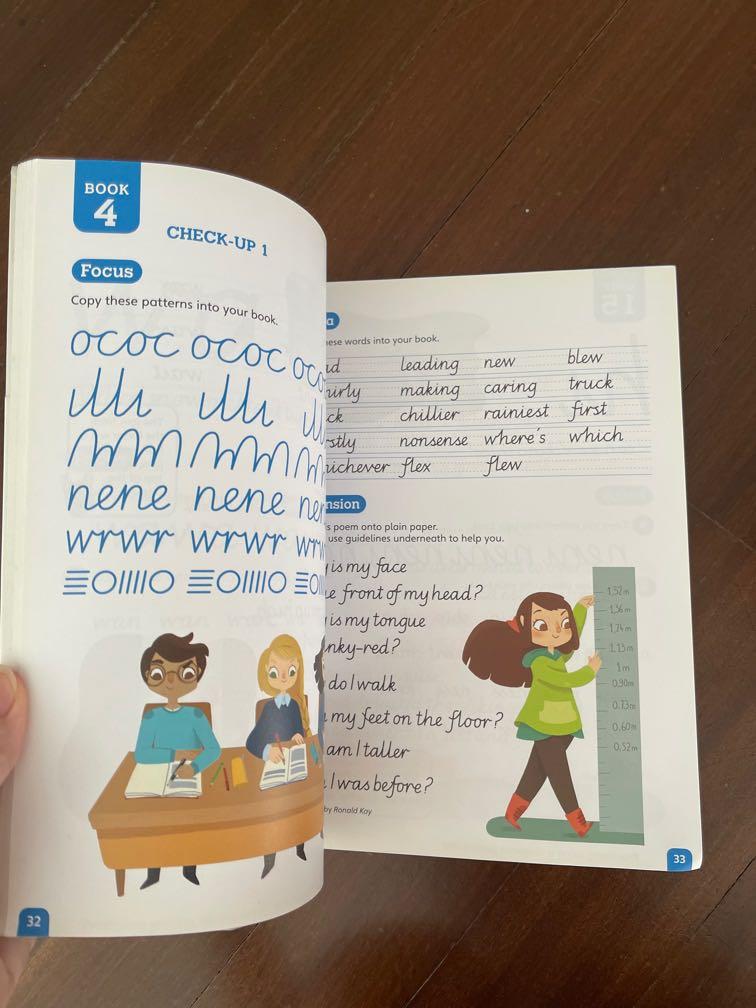 BOOK
4
CHECK-UP 1
Focus
Copy these patterns into your book.
ococ ococ oco
nene nene ne
wrwr wrwr wr
32
words into your book.
leading new blew
making caring truck
chillier rainiest first
nonsense where's which
flex flew
poem onto plain paper.
use guidelines underneath to help you.
is my face
front of my head?
is my tongue
do I walk
my feet on the floor?
am I taller
I was before?
by Ronald Kay
1.52m
1m
0.90m
0.73m
0.60m
0.52m
33